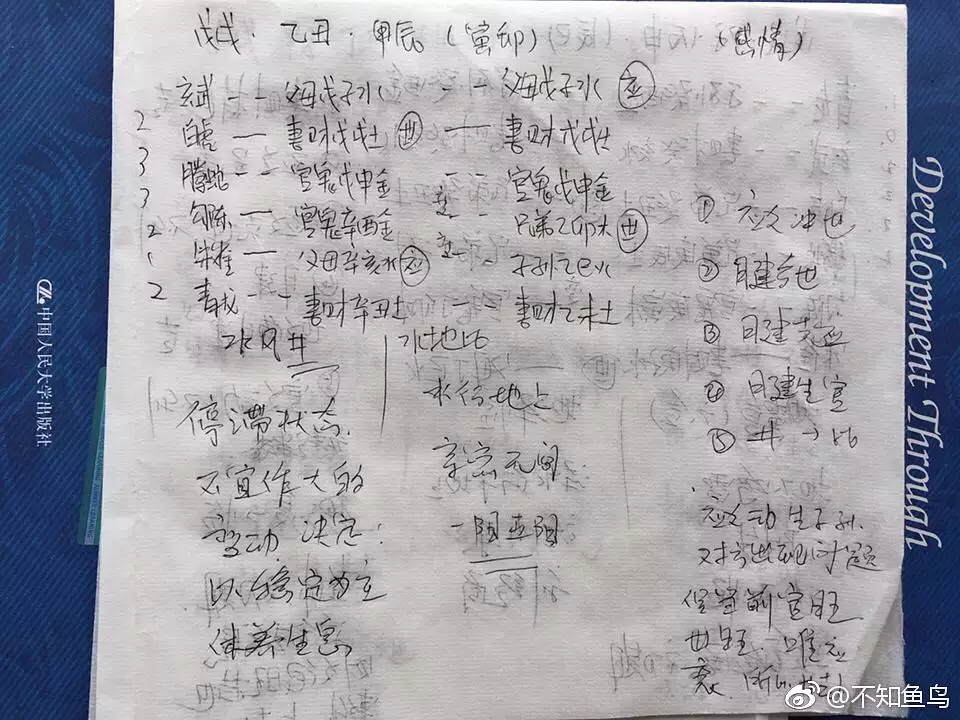 戊戌·乙丑·甲辰(寅卯) (感情)
玄武 -- 父母戊子水 -- 父母戊子水 应
2 白虎 — 妻财戊戌土 世 — 妻财戊戌土
3 腾蛇 -- 官鬼戊申金 -- 官鬼戊申金
3 勾陈 — 官鬼辛酉金 -- 兄弟乙卯木 世
2 朱雀 — 父母辛亥水 应 -- 子孙乙巳火
1
2 青龙 -- 妻财辛丑土 妻财乙未土
水风井
水地比
停滞状态
不宜作大的
变动 决定:
以稳定为主
休养生息
水行地上
亲密无间
① 应爻冲世
② 月建合世
③ 月建克应
④ 日建生官
⑤ 井→比
应爻动生子孙
对方出现问题
但是前官旺
世旺 唯应
衰
Development Through
中国人民大学出版社
@不知鱼鸟